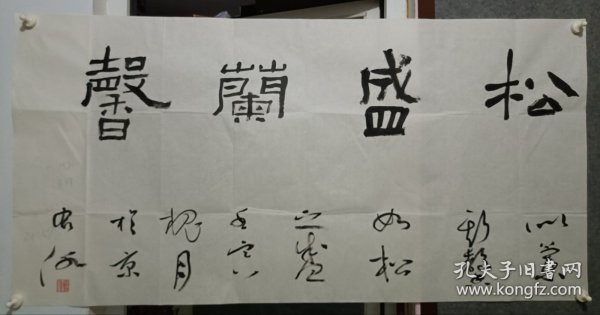 松盛蘭馨
似蘭
斯馨
如松
之盛
壬寅
槐月
於京
孔夫子旧书网
www.kongfz.com